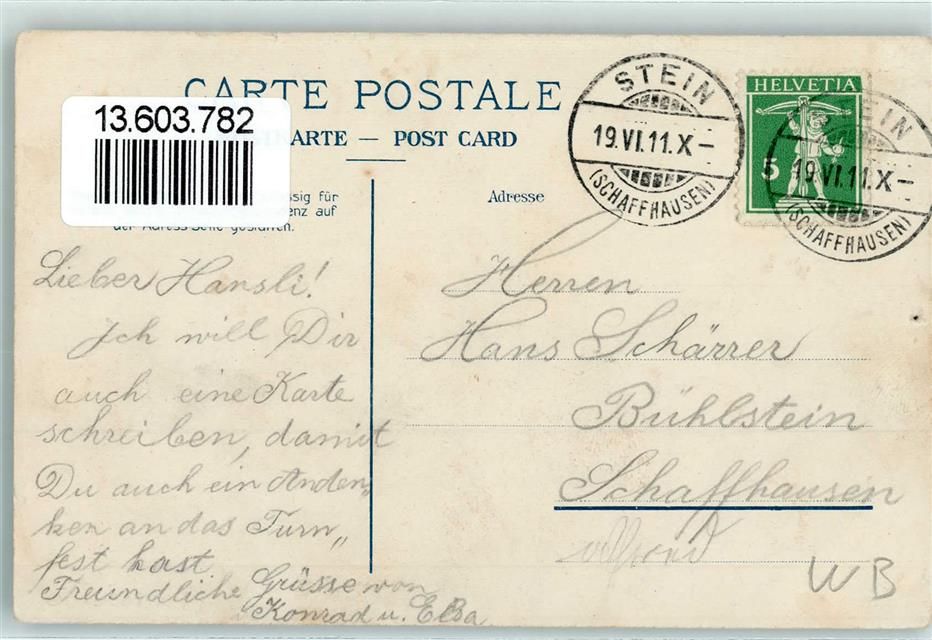 CARTE POSTALE
13.603.782
TKARTE — POST CARD
STEIN
19.VI.11.X–
(SCHAFFHAUSEN)
HELVETIA
5
STEIN
19.VI.11.X–
(SCHAFFHAUSEN)
ssig für
enz auf
der Adress-Seite gestatten.
Adresse
Lieber Hansli!
Ich will Dir
auch eine Karte
schreiben, damit
Du auch ein Anden„
ken an das Turn„
fest hast
Freundliche Grüsse von
Konrad u. Elsa
Herren
Hans Schärrer
Bühlstein
Schaffhausen
WB